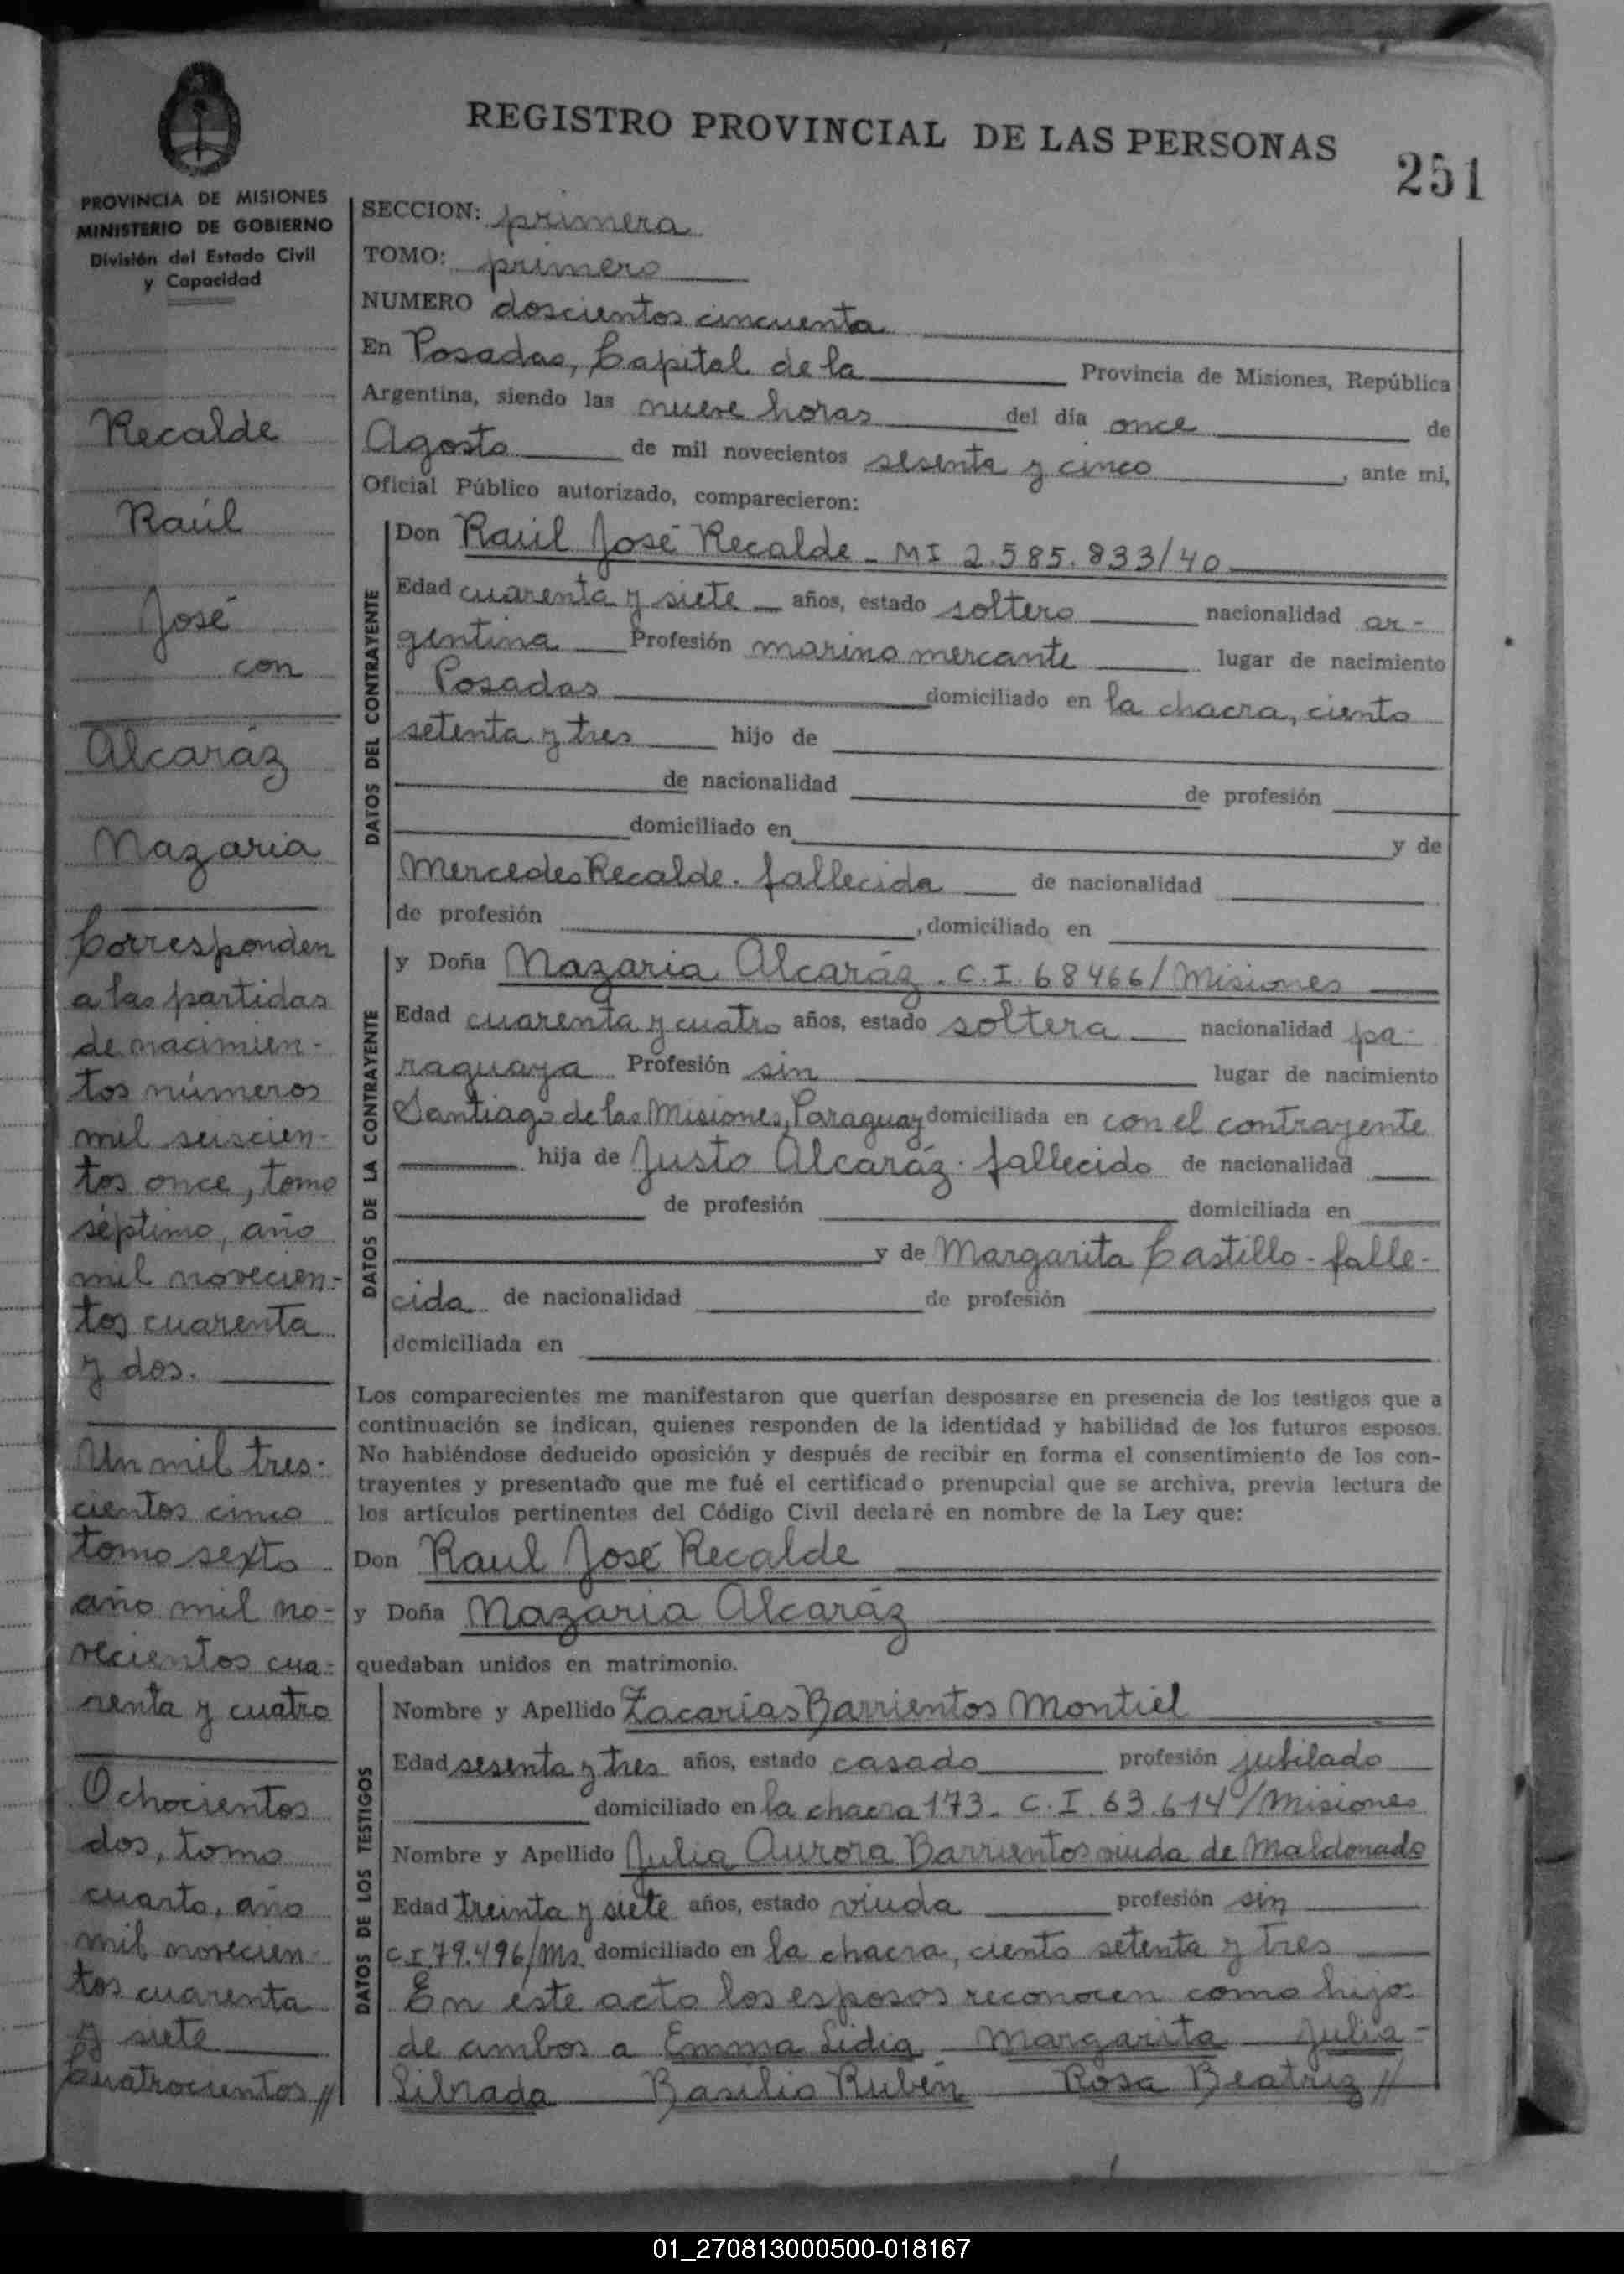 REGISTRO PROVINCIAL DE LAS PERSONAS
251
PROVINCIA DE MISIONES
MINISTERIO DE GOBIERNO
División del Estado Civil
y Capacidad
Recalde
Raúl
José
con
Alcaráz
Nazaria
Corresponden
a las partidas
de nacimien-
tos números
mil seiscien-
tos once, tomo
séptimo, año
mil novecien-
tos cuarenta
y dos.
Un mil tres-
cientos cinco
tomo sexto
año mil no-
vecientos cua-
renta y cuatro
Ochocientos
dos, tomo
cuarto, año
mil novecien-
tos cuarenta
y siete
Cuatrocientos //
SECCION: primera
TOMO: primero
NUMERO doscientos cincuenta
En Posadas, Capital de la Provincia de Misiones, República
Argentina, siendo las nueve horas del día once de
Agosto de mil novecientos sesenta y cinco, ante mi,
Oficial Público autorizado, comparecieron:
DATOS DEL CONTRAYENTE
Don Raúl José Recalde - MI 2.585.833/40
Edad cuarenta y siete años, estado soltero nacionalidad ar-
gentina Profesión marino mercante lugar de nacimiento
Posadas domiciliado en la chacra, ciento
setenta y tres hijo de
de nacionalidad de profesión
domiciliado en y de
Mercedes Recalde. fallecida de nacionalidad
de profesión , domiciliado en
DATOS DE LA CONTRAYENTE
y Doña Nazaria Alcaráz. C.I. 68466/Misiones
Edad cuarenta y cuatro años, estado soltera nacionalidad pa-
raguaya Profesión sin lugar de nacimiento
Santiago de las Misiones, Paraguay domiciliada en con el contrayente
hija de Justo Alcaráz. fallecido de nacionalidad
de profesión domiciliada en
y de Margarita Castillo - falle-
cida de nacionalidad de profesión
domiciliada en
Los comparecientes me manifestaron que querían desposarse en presencia de los testigos que a
continuación se indican, quienes responden de la identidad y habilidad de los futuros esposos.
No habiéndose deducido oposición y después de recibir en forma el consentimiento de los con-
trayentes y presentado que me fué el certificado prenupcial que se archiva, previa lectura de
los artículos pertinentes del Código Civil declaré en nombre de la Ley que:
Don Raul José Recalde
y Doña Nazaria Alcaráz
quedaban unidos en matrimonio.
DATOS DE LOS TESTIGOS
Nombre y Apellido Zacarías Barrientos Montiel
Edad sesenta y tres años, estado casado profesión jubilado
domiciliado en la chacra 173. C.I. 63.614/Misiones
Nombre y Apellido Julia Aurora Barrientos viuda de Maldonado
Edad treinta y siete años, estado viuda profesión sin
C.I 79.496/Ms. domiciliado en la chacra, ciento setenta y tres
En este acto los esposos reconocen como hijos
de ambos a Emma Lidia - Margarita - Julia -
Librada Basilio Rubén Rosa Beatriz //
01_270813000500-018167